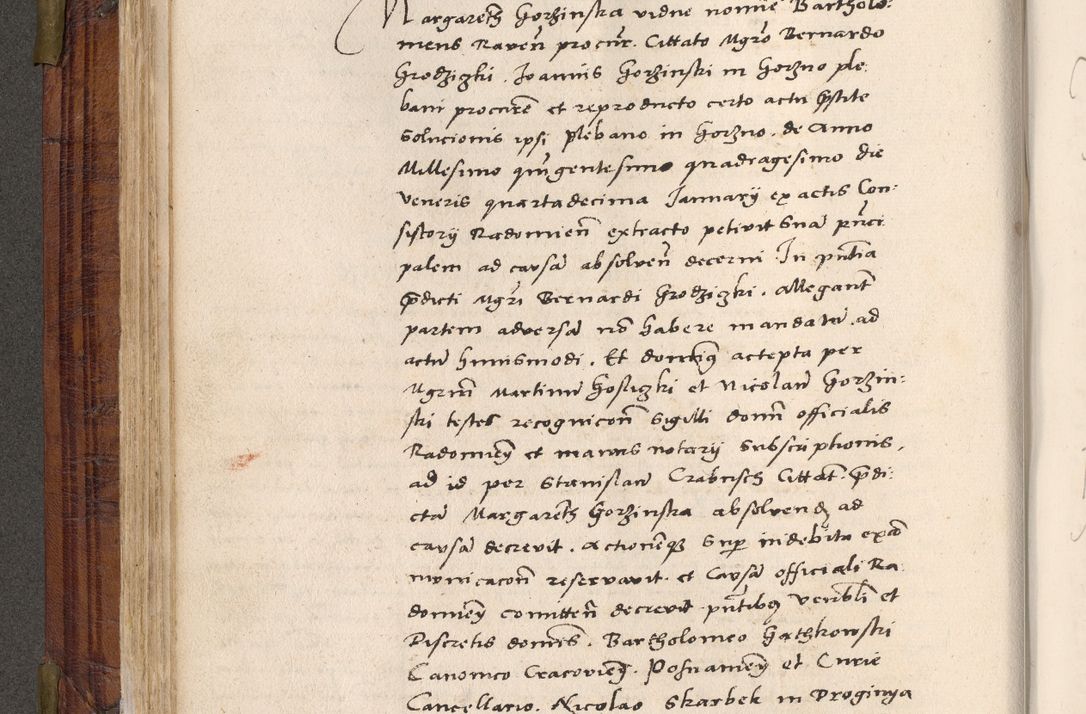 Margareth Gorzinska vidue nomine Bartholo:
meus Raven procur. Cittato Mgro Bernardo
Grodziczki. Joannis Gorzinski in Gorzno ple:
bani procurem et reproducto certo actu pstite
solucionis ipsi plebano in Gorzno. de Anno
Millesimo quingentesimo quadragesimo die
veneris quartadecima Januarij ex actis Con:
sistorij Radomien extracto petivit suam princi
palem ad causam absolven decerni In pntia
pdicti Mgri Bernardi Grodziczki. Allegant
partem adversam non habere mandatum ad
actum huiusmodi. Et dominus accepta per
Mgrum Martinum Gosliczki et Nicolaum Gorzin:
ski testes recognicon sigilli domini officialis
Radomien et manus notarij subscriptionis,
ad id per Stanislaum Crabisch Cittat. pdi:
ctam Margareth Gorzinska absolvend ad
causam decrevit. Actionemque super indebita exco
municacon reservavit. et Causam officiali Ra
domien comitten decrevit. pntibus Venbli et
Discretis dominis. Bartholomeo Gathkowski
Canonico Cracovien. Posnanien et Curie
Cancellario. Nicolao Skarbek in Droginya